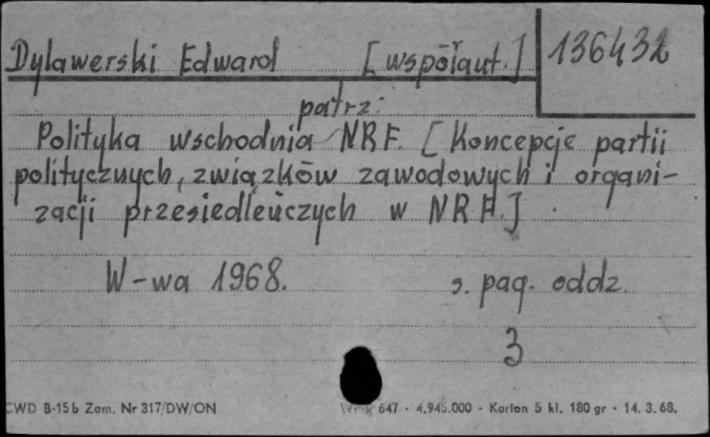 Dylawerski Edward [współaut.] 136432
patrz:
Polityka wschodnia NRF. [Koncepcje partii
politycznych, związków zawodowych i organi-
zacji przesiedleńczych w NRF.]
W-wa 1968. s. pag. oddz.
3
CWD B-15b Zam. Nr 317/DW/ON 647 - 4.945.000 - Karton 5 kl. 180 gr - 14. 3. 68.